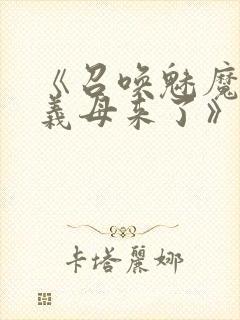 《召唤魅魔
義母来了》
卡塔麗娜